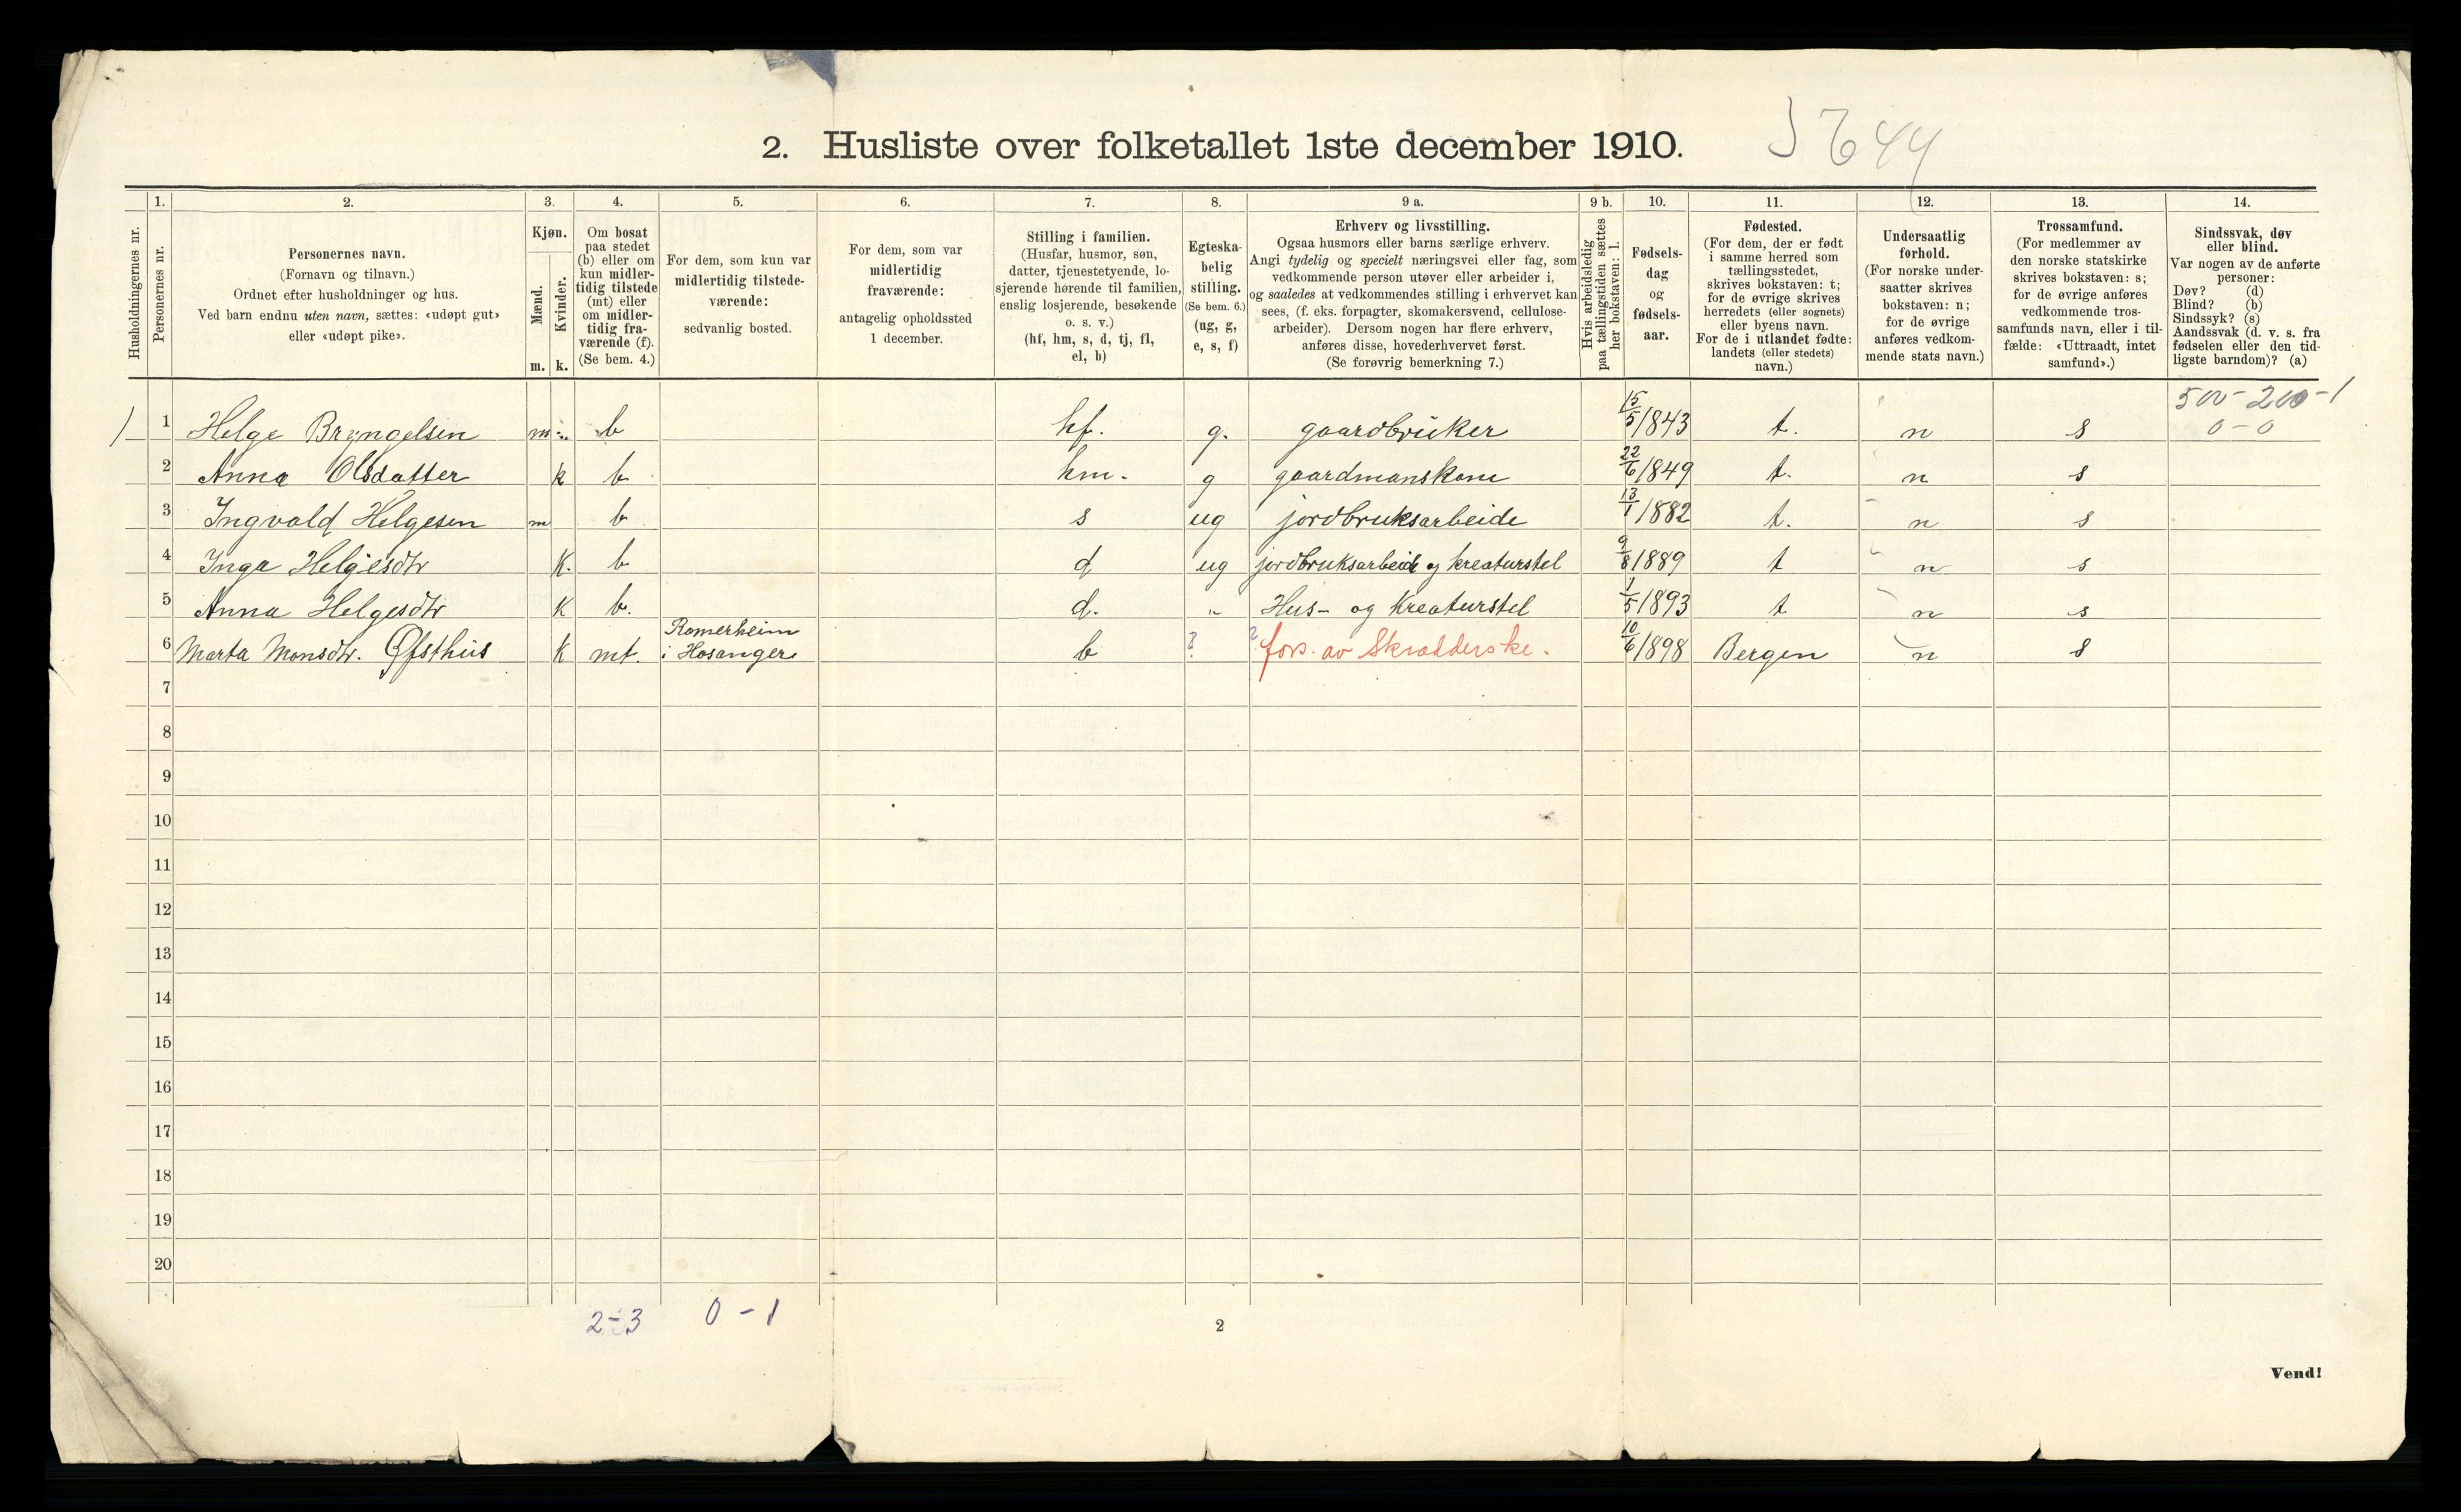 2. Husliste over folketallet 1ste december 1910.
Husholdningernes nr.
1.
Personernes nr.
2.
Personernes navn.
(Fornavn og tilnavn.)
Ordnet efter husholdninger og hus.
Ved barn endnu uten navn, sættes: «udøpt gut»
eller «udøpt pike».
3.
Kjøn.
Mænd.
Kvinder.
m. k.
4.
Om bosat
paa stedet
(b) eller om
kun midler-
tidig tilstede
(mt) eller
om midler-
tidig fra-
værende (f).
(Se bem. 4.)
5.
For dem, som kun var
midlertidig tilstede-
værende:
sedvanlig bosted.
6.
For dem, som var
midlertidig
fraværende:
antagelig opholdssted
1 december.
7.
Stilling i familien.
(Husfar, husmor, søn,
datter, tjenestetyende, lo-
sjerende hørende til familien,
enslig losjerende, besøkende
o. s. v.)
(hf, hm, s, d, tj, fl,
el, b)
8.
Egteska-
belig
stilling.
(Se bem. 6.)
(ug, g,
e, s, f)
9 a.
Erhverv og livsstilling.
Ogsaa husmors eller barns særlige erhverv.
Angi tydelig og specielt næringsvei eller fag, som
vedkommende person utøver eller arbeider i,
og saaledes at vedkommendes stilling i erhvervet kan
sees, (f. eks. forpagter, skomakersvend, cellulose-
arbeider). Dersom nogen har flere erhverv,
anføres disse, hovederhvervet først.
(Se forøvrig bemerkning 7.)
9 b.
Hvis arbeidsledig
paa tællingstiden sættes
her bokstaven: l.
10.
Fødsels-
dag
og
fødsels-
aar.
11.
Fødested.
(For dem, der er født
i samme herred som
tællingsstedet,
skrives bokstaven: t;
for de øvrige skrives
herredets (eller sognets)
eller byens navn.
For de i utlandet fødte:
landets (eller stedets)
navn.)
12.
Undersaatlig
forhold.
(For norske under-
saatter skrives
bokstaven: n;
for de øvrige
anføres vedkom-
mende stats navn.)
13.
Trossamfund.
(For medlemmer av
den norske statskirke
skrives bokstaven: s;
for de øvrige anføres
vedkommende tros-
samfunds navn, eller i til-
fælde: «Uttraadt, intet
samfund».)
14.
Sindssvak, døv
eller blind.
Var nogen av de anførte
personer:
Døv? (d)
Blind? (b)
Sindssyk? (s)
Aandssvak (d. v. s. fra
fødselen eller den tid-
ligste barndom)? (a)
500-200-1
0-0
1 Helge Bryngelsen m b hf. g. gaardbruker 15/5 1843 t. n s
2 Anna Olsdatter k b hm. g gaardmanskone 22/6 1849 t. n s
3 Ingvald Helgesen m b s ug jordbruksarbeide 13/1 1882 t. n s
4 Inga Helgesdtr K. b d ug jordbruksarbeide og kreaturstel 9/8 1889 t n s
5 Anna Helgesdtr K b. d. " Hus- og Kreaturstel 1/5 1893 t n s
6 Marta Monsdtr. Øfsthus K mt. Romerheim i Hosanger b ? ? fors. av Skrædderske. 10/6 1898 Bergen n s
7
8
9
10
11
12
13
14
15
16
17
18
19
20
2-3 0-1
2
Vend!